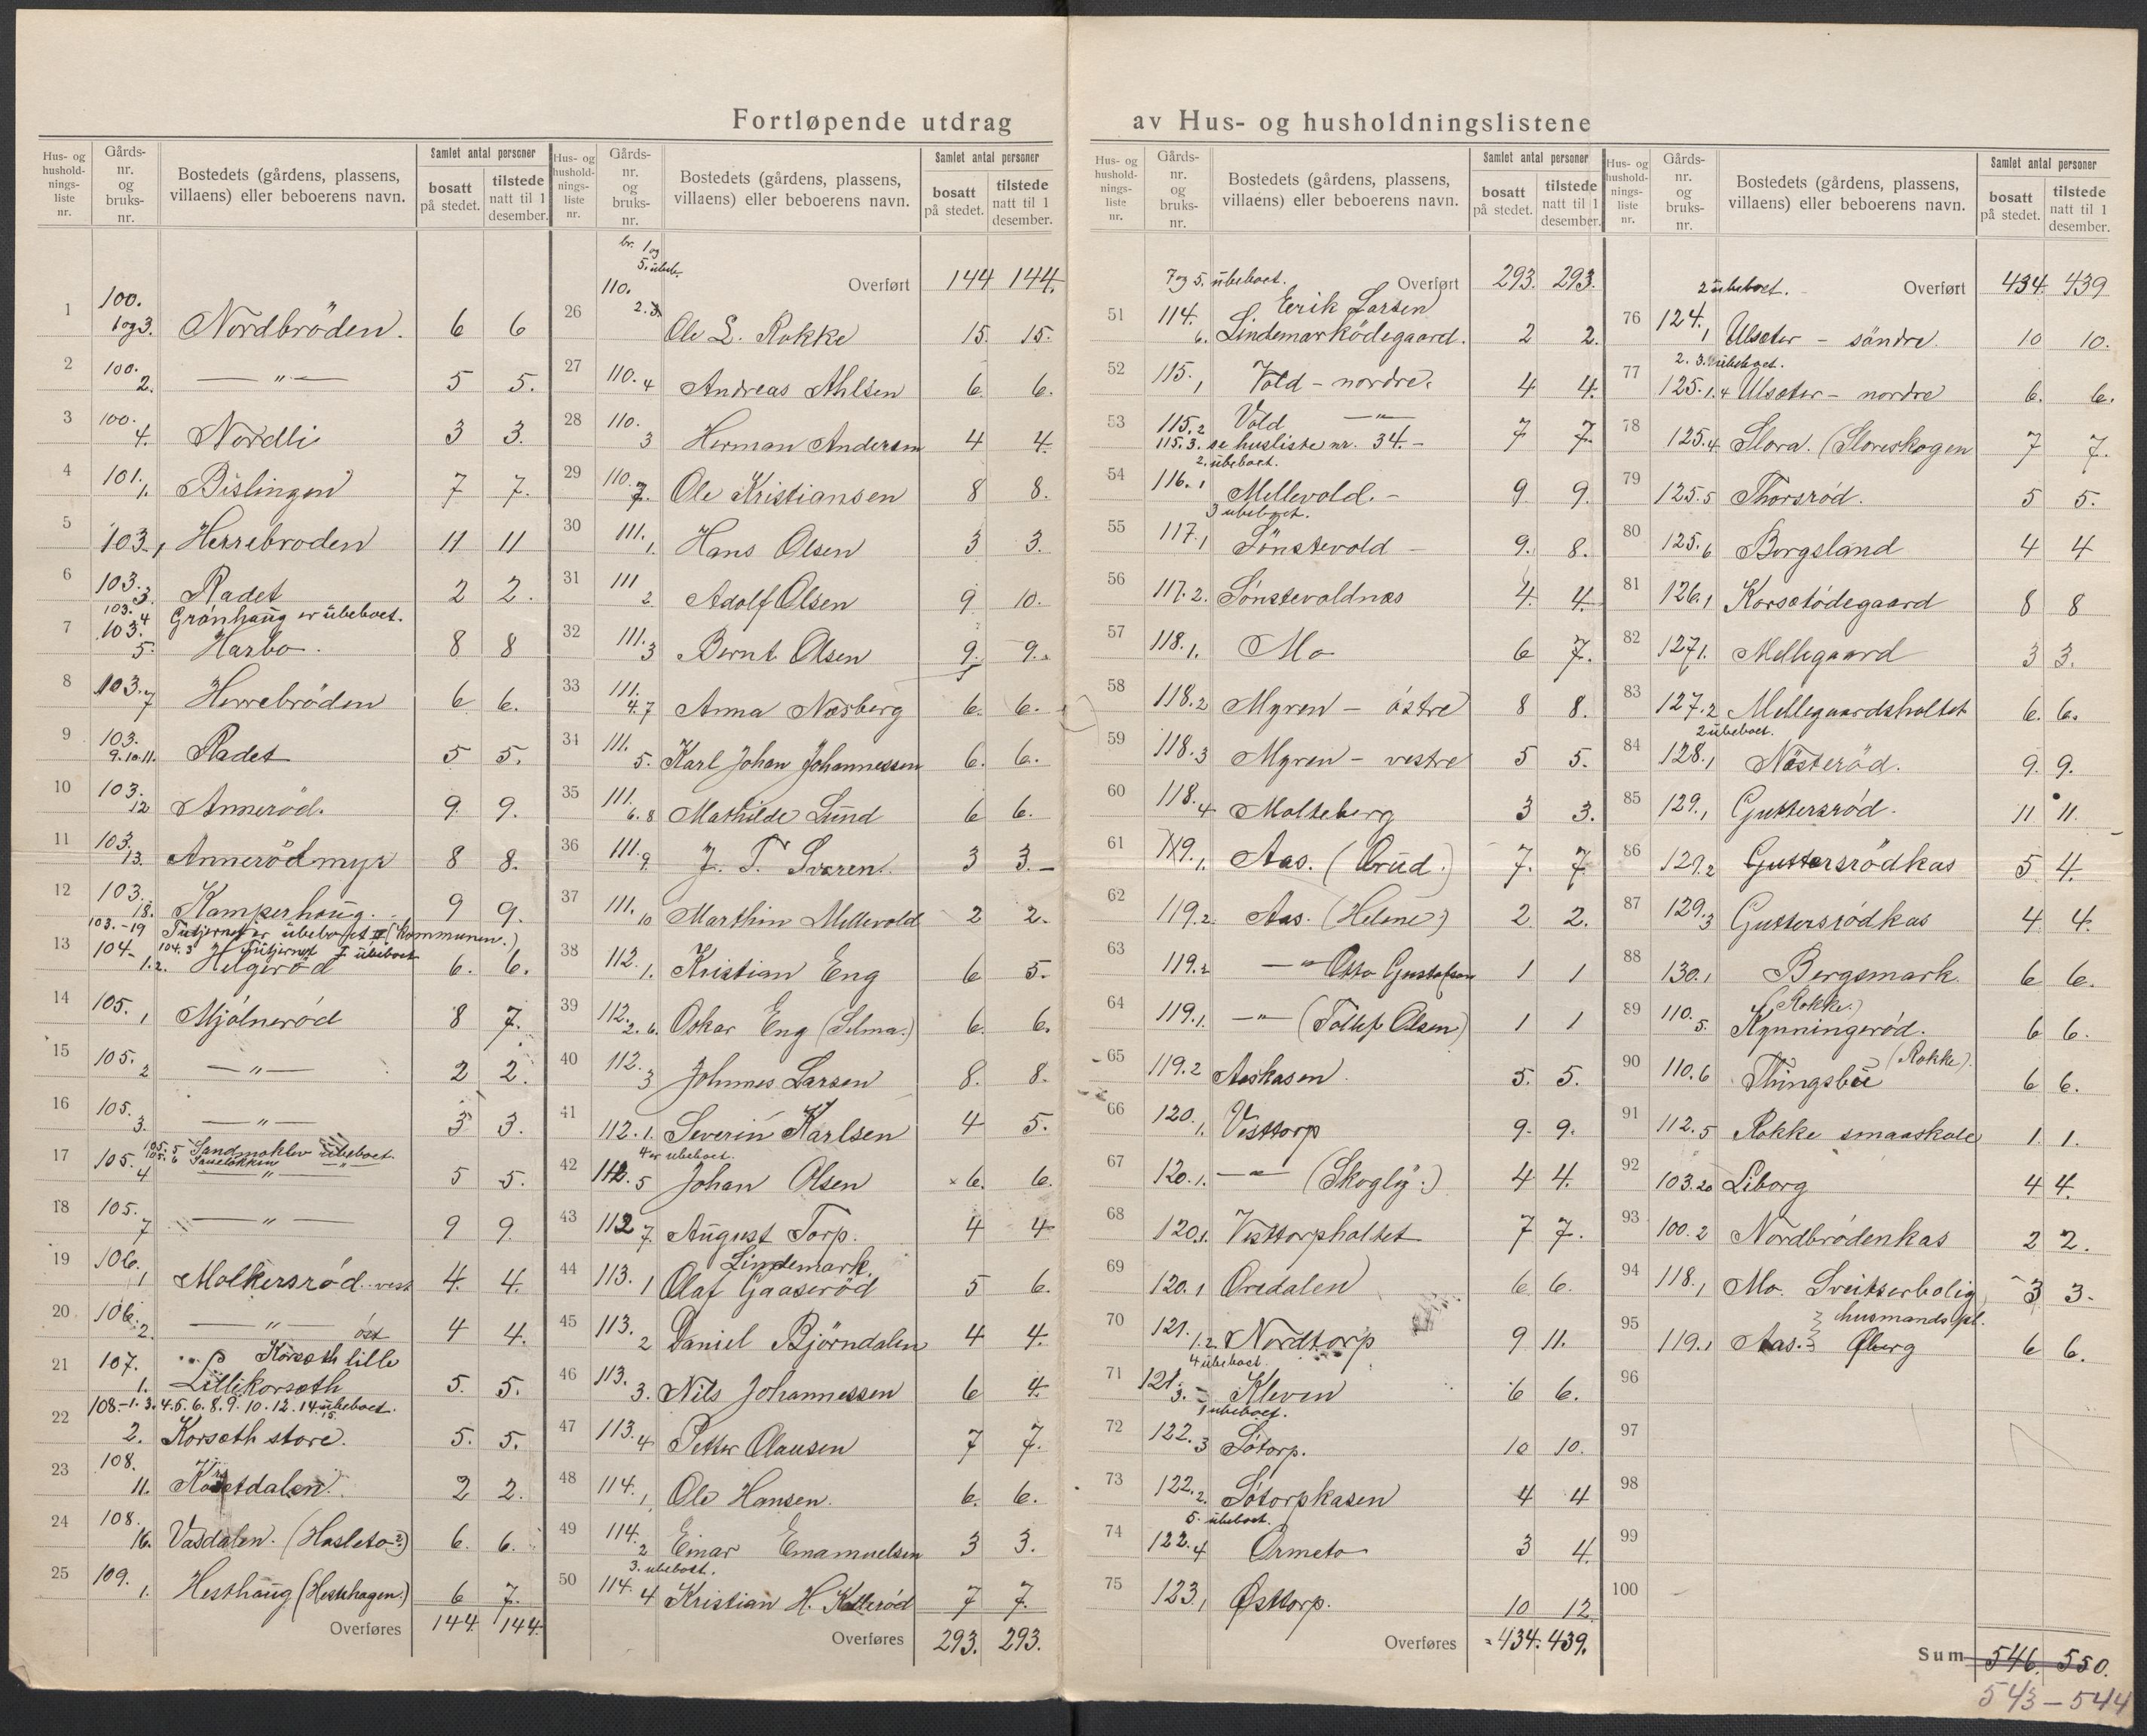 Fortløpende utdrag av Hus- og husholdningslistene
Hus- og husholdnings-liste nr. Gårds-nr. og bruks-nr. Bostedets (gårdens, plassens, villaens) eller beboerens navn. Samlet antal personer bosatt på stedet. tilstede natt til 1 desember.
1 100. 1og3. Nordbröden. 6 6
2 100. 2. — " — 5 5.
3 100. 4. Nordli 3 3.
4 101. 1. Bislingen 7 7.
5 103. 1 Herrebroden 11 11
6 103. 3. Radet 2 2.
103. 4 Grønhaug er ubeboet.
7 103. 5. Harbo. 8 8
8 103. 7 Herrebröden 6 6.
9 103. 9.10.11. Radet 5 5.
10 103. 12 Annerød. 9 9.
11 103. 13. Annerödmyr 8 8.
12 103. 18. Kamperhaug. 9 9.
103.-19 Tutjernet er ubeboet (Kommunen.)
104.3 Tutjernet I ubeboet
13 104. 1.2. Helgerød 6. 6.
14 105. 1 Mjölnerød 8 7.
15 105. 2 — " — 2 2.
16 105. 3. — " — 3 3.
105. 5 Sandmoklev ubeboet.
105. 6 — " —
17 105. 4 — " — 5 5.
18 105. 7 — " — 9 9.
19 106. 1 Molkersrød vest 4. 4.
20 106. 2. — " — öst 4 4.
Korsæth lille
21 107. 1. Lillekorsæth 5. 5.
108.-1.3.4.5.6.8.9.10.12.14.15. ubeboet.
22 2. Korsæth store. 5. 5.
23 108. 11. Korsetdalen. 2 2.
24 108. 16. Vasdalen. (Hasleto?) 6. 6.
25 109. 1. Hesthaug (Hestehagen.) 6 7.
Overføres 144. 144.
br. 1 og 5. ubeb.
Overført 144 144.
26 110. 2.3. Ole L. Rokke 15. 15.
27 110. 4 Andreas Ahlsen 6. 6.
28 110. 3 Herman Andersen 4 4.
29 110. 7. Ole Kristiansen 8 8.
30 111. 1. Hans Olsen 3 3.
31 111 2. Adolf Olsen 9 10.
32 111. 3 Bernt Olsen 9. 9.
33 111. 4.7 Anna Næsberg 6. 6.
34 111. 5. Karl Johan Johannessen 6. 6.
35 111. 6.8 Mathilde Lund 6 6.
36 111. 9. J. T. Sværen. 3 3.
37 111. 10 Marthin Mellevold 2 2.
38 112. 1. Kristian Eng 6 5.
39 112. 2.6. Oskar Eng (Selma.) 6. 6.
40 112. 3 Johnnes Larsen 8. 8.
41 112. 1. Severin Karlsen 4 5.
4 er ubeboet.
42 112. 5 Johan Olsen 6. 6.
43 112 7. August Torp. 4 4
Lindemark
44 113. 1 Olaf Gaaserød 5 6.
45 113. 2 Daniel Björndalen 4 4.
46 113. 3. Nils Johannessen 6 4.
47 113. 4 Petter Clausen 7 7.
48 114. 1 Ole Hansen. 6. 6.
49 114. 2 Einar Emanuelsen 3 3.
3. ubeboet.
50 114. 4 Kristian H. Kallerød 7 7.
Overføres 293. 293.
7 og 5. ubeboet. Overført 293. 293.
Erik Larsen
51 114. 6. Lindemarködegaard. 2 2.
52 115. 1 Vold - nordre. 4 4.
53 115. 2 Vold — " — 7 7.
115.3. se husliste nr. 34.-
2. ubeboet.
54 116. 1 Mellevold. - 9 9.
3 ubeboet.
55 117. 1 Sönstevold - 9. 8.
56 117. 2. Sönstevoldnæs 4. 4.
57 118. 1. Mo 6 7.
58 118. 2 Myren - östre 8 8.
59 118. 3 Myren - vestre 5 5.
60 118. 4 Molteberg 3 3.
61 119. 1. Aas. (Brud.) 7. 7
62 119. 2. Aas. (Helene) 2 2.
63 119. 2 — " Otto Gustafson 1 1
64 119. 1. — " — (Tollef Olsen) 1 1
65 119. 2 Aaskasen 5. 5.
66 120. 1. Visttorp 9. 9.
67 120. 1. — " — (Skogly.) 4 4.
68 120. 1. Visttorpholtet 7 7.
69 120. 1 Oredalen 6 6.
70 121. 1.2. Nordtorp 9 11.
4 ubeboet.
71 121. 3. - Kleven 6 6.
1 ubeboet.
72 122. 3 Sötorp. 10 10.
73 122. 2. Sötorpkasen 4 4
5. ubeboet.
74 122. 4 Ormeto 3 4.
75 123. 1 Østtorp. 10 12.
Overføres 434. 439.
2 ubeboet. - Overført 434 439
76 124. 1 Ulsæter - söndre. 10 10.
2. 3. ubeboet.
77 125. 1.4 Ulsæter - nordre 6. 6.
78 125. 4 Slora. (Sloreskogen 7 7.
79 125. 5 Thorsrød. 5 5.
80 125. 6 Borgsland 4 4
81 126. 1 Korsetödegaard 8 8
82 127 1. Mellegaard 3 3.
83 127. 2 Mellegaardsholtet 6. 6.
2 ubeboet.
84 128. 1 Nösteröd. 9. 9.
85 129. 1 Guttersrød. 11 11.
86 129. 2 Guttersrödkas 5 4.
87 129. 3 Guttersrödkas 4 4.
88 130. 1 Bergsmark. 6 6.
(Rokke.)
89 110. 5. Kynningerød. 6 6.
(Rokke).
90 110. 6 Thingsbu 6 6.
91 112. 5 Rokke smaaskole 1. 1.
92 103. 20 Liborg 4 4.
93 100. 2 Nordbrødenkas 2 2.
94 118. 1 Mo. Sveitserbolig 3 3.
husmandspl.
95 119. 1 Aas. Øberg 6 6.
96
97
98
99
100
Sum 546. 550.
543 - 544